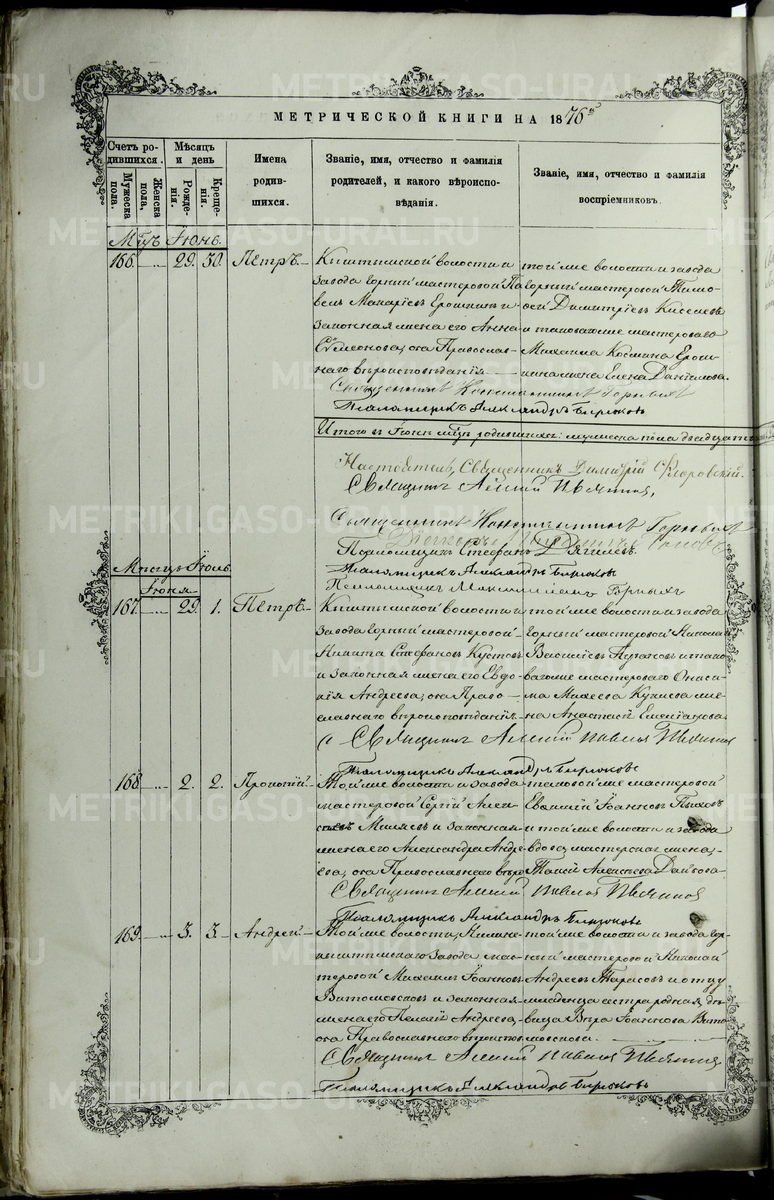 МЕТРИЧЕСКОЙ КНИГИ НА 1876
Счетъ ро-
дившихся.
Мѣсяцъ
и день
Имена
родив-
шихся.
Званіе, имя, отчество и фамилія
родителей, и какого вѣроиспо-
вѣданія.
Званіе, имя, отчество и фамилія
воспріемниковъ.
Мужеска
пола.
Женска
пола.
Рожде-
нія.
Креще-
нія.
Мцъ Іюнь.
166. 29. 30. Петръ.
Кыштымской волости и
завода горный мастеровой Па
велъ Макаріевъ Ерошкинъ и
законная жена его Анна
Сѵмеонова; оба Православ-
наго вѣроисповѣданія
той же волости и завода
горный мастеровой Тимо-
фей Димитріевъ Киселевъ
и таковаго же мастероваго
Михаила Космина Ерош-
кина жена Елена Данилова.
Священникъ Константинъ Горныхъ
Псаломщикъ Александръ Бирюковъ
Итого въ Іюнѣ мцѣ родившихся: мужеска пола двадцать
Настоятель, Священникъ Димитрій
Священникъ Алексій
Священникъ Константинъ Горныхъ
Псаломщикъ Стефанъ Дягилевъ
Псаломщикъ Александръ Бирюковъ
Псаломщикъ Максимиліанъ Горныхъ
Мѣсяцъ Іюль.
Іюня
167. 29. 1. Петръ
Кыштымской волости и
завода горный мастеровой
Никита Стефановъ Кустовъ
и законная жена его Евдо-
кія Андреева; оба Право-
славнаго вѣроисповѣданія
той же волости и завода
горный мастеровой Николай
Василіевъ и тако-
ваго же мастероваго Ониси-
ма Михеева же-
на Анастасія Емеліанова
Священникъ Алексій Павловъ
Псаломщикъ Александръ Бирюковъ
168 2. 2. Прокопій.
Той же волости и завода
мастеровой Сергій Алек-
сіевъ и законная
жена его Александра Андре-
ева, оба Православнаго вѣро
таковой же мастеровой
Евѳимій Іоанновъ
и той же волости и завода
вдова, мастерская жена,
Таисія Данилова
Священникъ Алексій Павловъ
Псаломщикъ Александръ Бирюковъ
169. 3. 3. Андрей.
Той же волости, Нижне-
кыштымскаго завода мас-
теровой Михаилъ Іоанновъ
Витомсковъ и законная
жена его Пелагія Андреева,
оба Православнаго вѣроиспов
той же волости и завода гор-
ный мастеровой Николай
Андреевъ Тарасовъ и отцу
младенца сестра родная, дѣ-
вица Вѣра Іоаннова Вито
мскова.
Священникъ Алексій Павловъ
Псаломщикъ Александръ Бирюковъ
METRIKI.GASO-URAL.RU